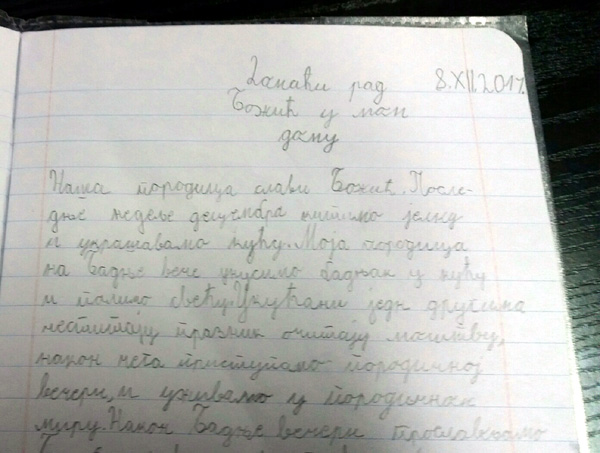 Домаћи рад 8.XII.2017.
Божић у мом
дому
Наша породица слави Божић. После-
дње недеље децембра китимо јелку
и украшавамо кућу. Моја породица
на Бадње вече уносимо бадњак у кућу
и палимо свећу. Укућани једн другима
честитају празник очитају молитву,
након чега приступамо породичној
вечери, и уживамо у породичном
миру. Након Бадње вечери прославља­мо